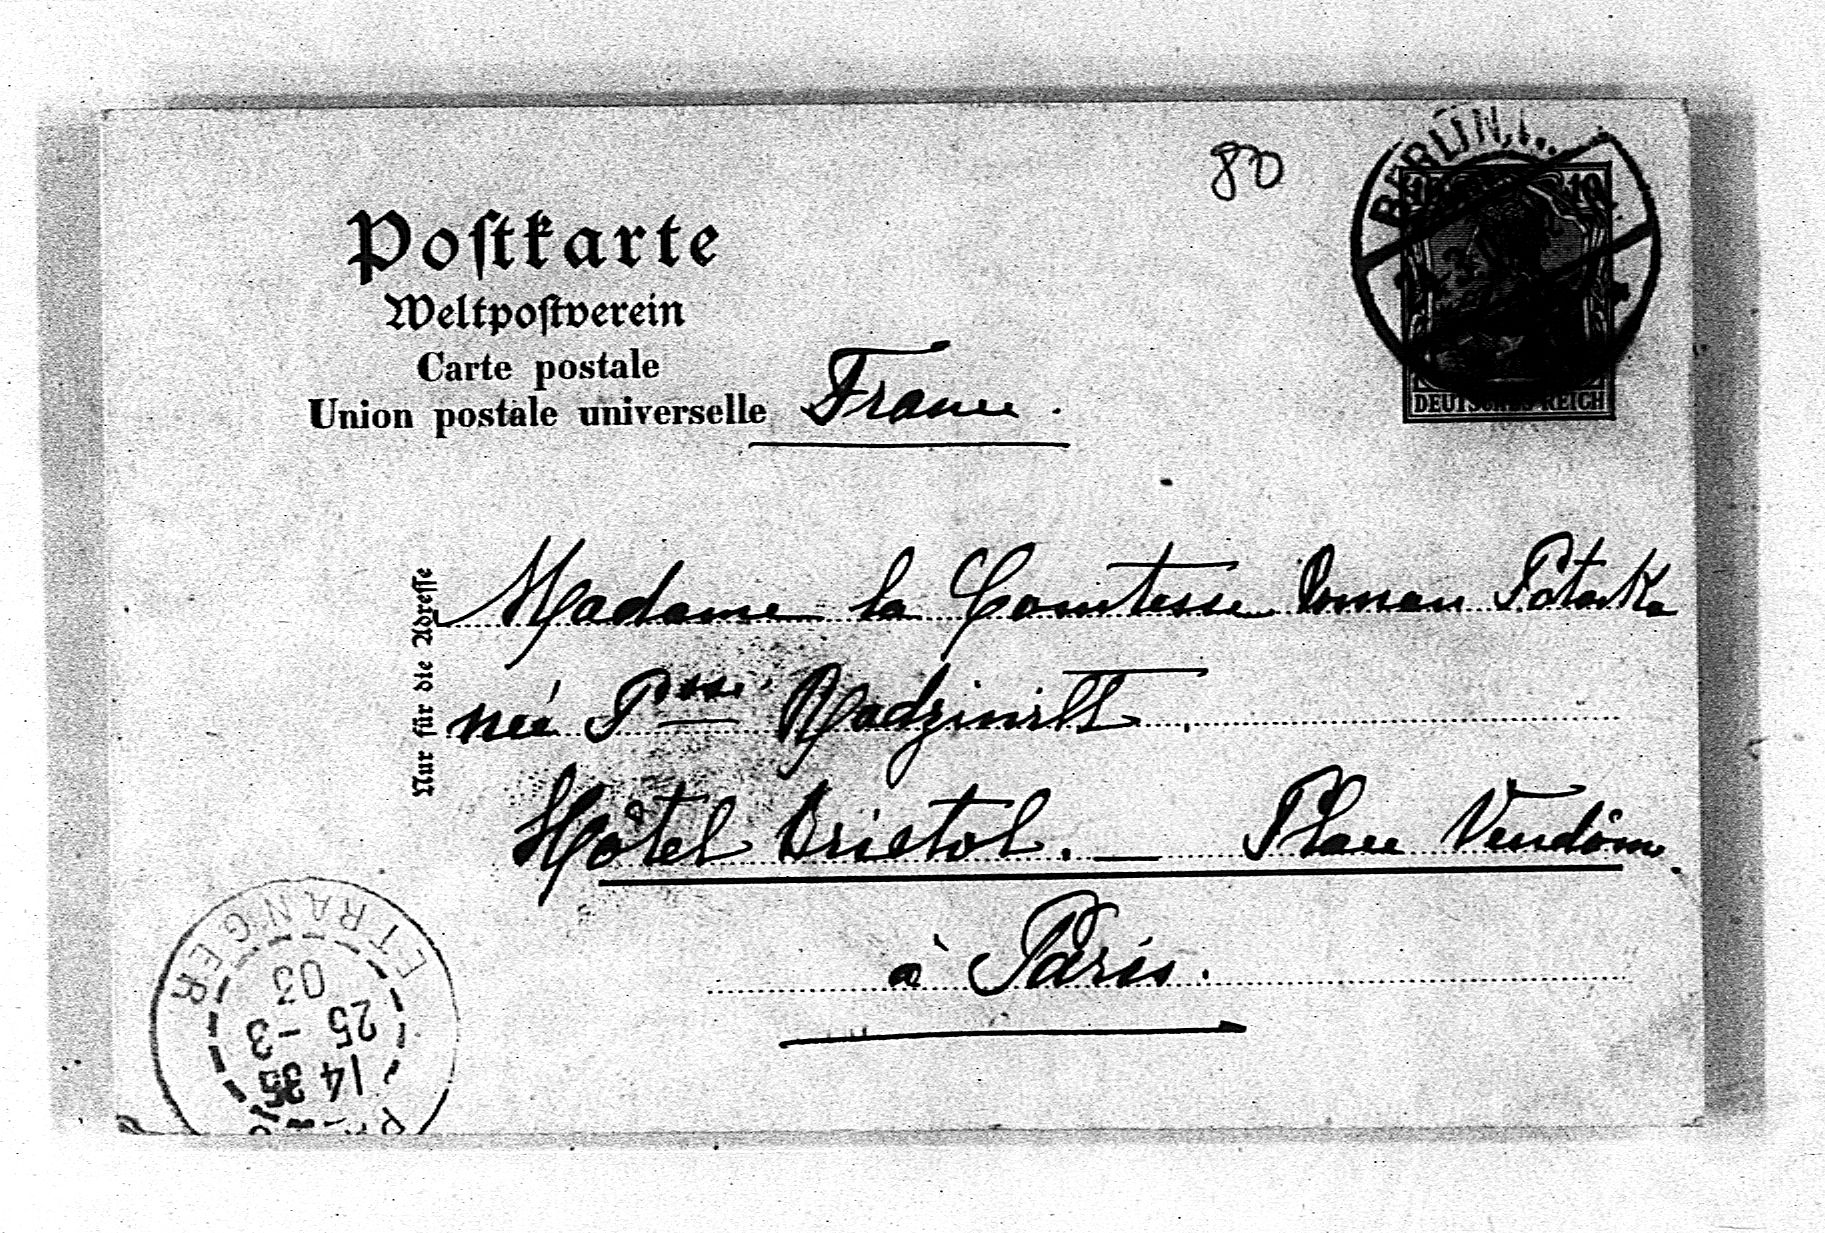 80
BERLIN
10
DEUTSCHES REICH
Postkarte
Weltpostverein
Carte postale
Union postale universelle
France.
Nur für die Adresse
Madame la Comtesse Roman Potocka
née Psse. Radziwill.
Hôtel Bristol. — Place Vendôme.
à Paris.
ETRANGER
14 35
25 -3
03